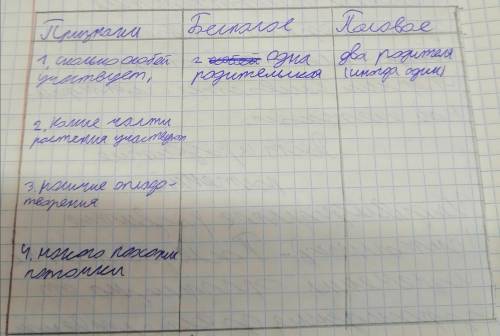 Признаки Бесполое Половое
1. сколько особей одна два родителя
участвует, родительская (иногда один)
2. Какие части
растения участвуют
3. наличие оплодо-
творения
4. на кого похожи
потомки